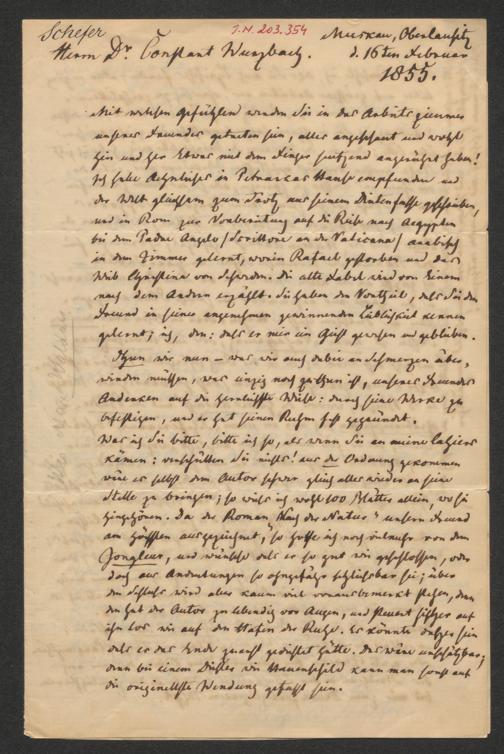 Schefer
J.N. 203.354
Muskau, Oberlausitz
Herrn Dr. Constant Wurzbach.
d. 16ten Februar
1855.
Mit welchen Gefühlen werden Sie in das Arbeitszimmer
unseres Freundes getreten sein, alles angeschaut und wohl
hin und her Etwas mit dem Finger angerührt haben!
Ich habe Aehnliches in Petrarkas Hause empfunden und
der Welt gleichsam zum aus seinem Dintenfasse geschrieben,
und in Rom zur Vorbereitung auf die Reise nach Aegypten
bei dem Padre Angelo (Scrittore an der Vaticana) arabisch
in dem Zimmer gelernt, worin Rafael gestorben und das
Christina von Schweden. Die alte Fabel wird von Einem
nach dem Andern erzählt. Sie haben den Vortheil, daß Sie den
Freund in seiner angenehmen gewinnenden Leiblichkeit kennen
gelernt; ich, den: daß er mir ein Geist gewesen und geblieben.
Thun wir nun – was wir auch dabei an Schmerzen über-
winden müssen, was einzig noch zu thun ist, unseres Freundes
Andenken auf die herrlichste Weise: durch seine Werke zu
befestigen, und er hat seinen Ruhm fest gegründet.
Was ich Sie bitte, bitte ich so, als wenn Sie an meine Cahiers
kämen: verschütten Sie nichts! aus der Ordnung gekommen
wäre es selbst dem Autor schwer gleich alles wieder an seine
Stelle zu bringen; so weiß ich wohl 100 Blätter allein, wo sie
hingehören. Da der Roman „Nach der Natur“ unsern Freund
am höchsten ausgezeichnet, so hoffe ich noch von dem
Jongleur, und wünsche daß er so gut wie geschlossen, oder
doch aus Andeutungen so ohngefähr schließbar sei; über
den Schluß wird aber kaum viel vorausbemerkt stehen, denn
den hat der Autor zu lebendig vor Augen, und steuert auf
ihn los wie auf den Hafen der Ruhe. Er könnte daher sein
daß er das Ende zuerst gedichtet hätte. Das wäre unschätzbar;
denn bei einem Dichter wie Hauenschild kann man sonst auf
die originellste Wendung gefaßt sein.